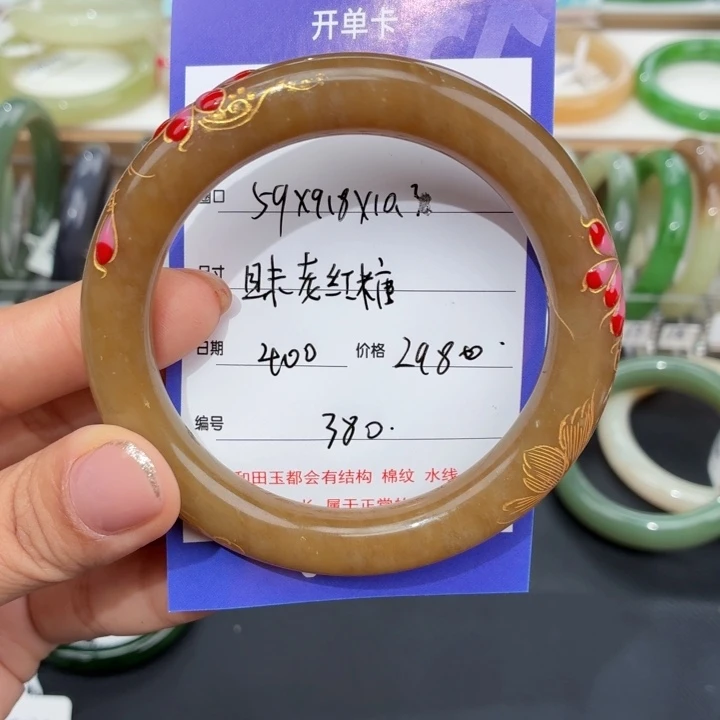 开单卡
圈口 59X9.8X10.3
尺寸 且末老红糖
日期 400 价格 29800.
编号 380.
和田玉都会有结构 棉纹 水线
属于正常